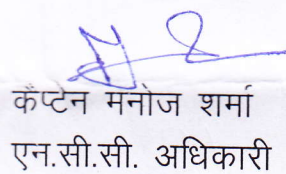 कैप्टेन मनोज शर्मा
एन.सी.सी. अधिकारी